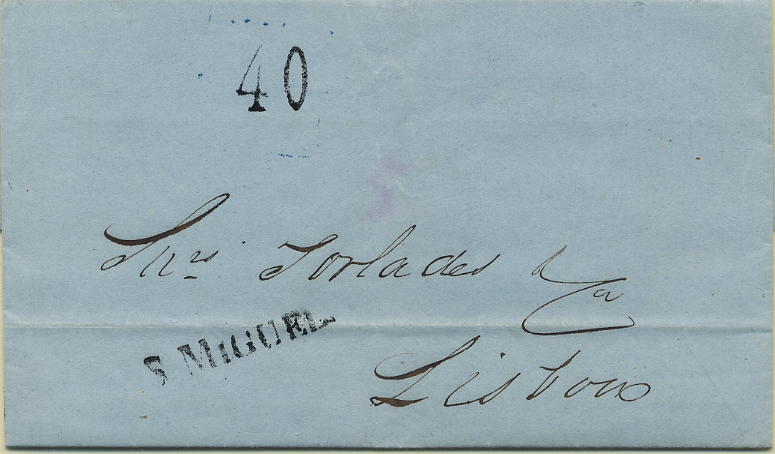 40
Snrs Torlades & Ca
S. MIGUEL
Lisboa